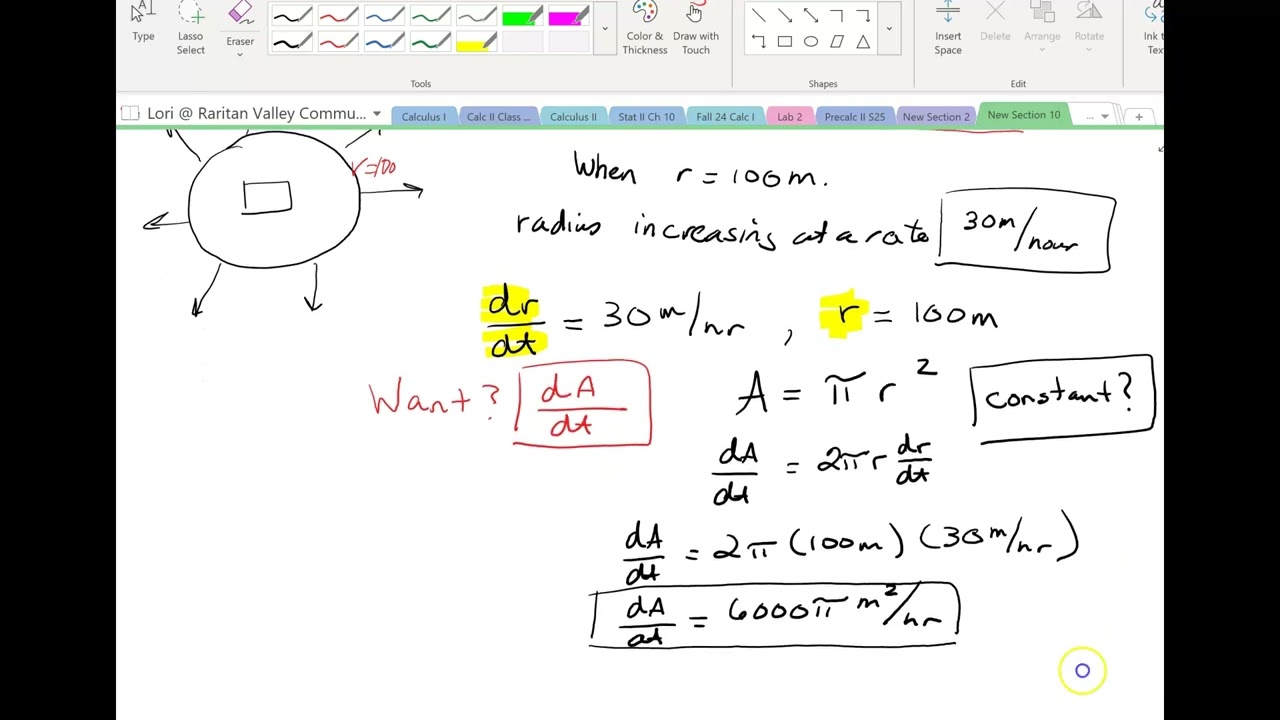 Type
Lasso Select
Eraser
Color & Thickness
Draw with Touch
Insert Space
Delete
Arrange
Rotate
Tools
Shapes
Edit
Lori @ Raritan Valley Commu...
Calculus I
Calc II Class ...
Calculus II
Stat II Ch 10
Fall 24 Calc I
Lab 2
Precalc II S25
New Section 2
New Section 10
...
+
r=100
When r = 100m.
radius increasing at a rate 30m/hour
dr/dt = 30 m/hr , r = 100m
Want? dA/dt
A = πr² constant?
dA/dt = 2πr dr/dt
dA/dt = 2π (100m) (30 m/hr)
dA/dt = 6000π m²/hr